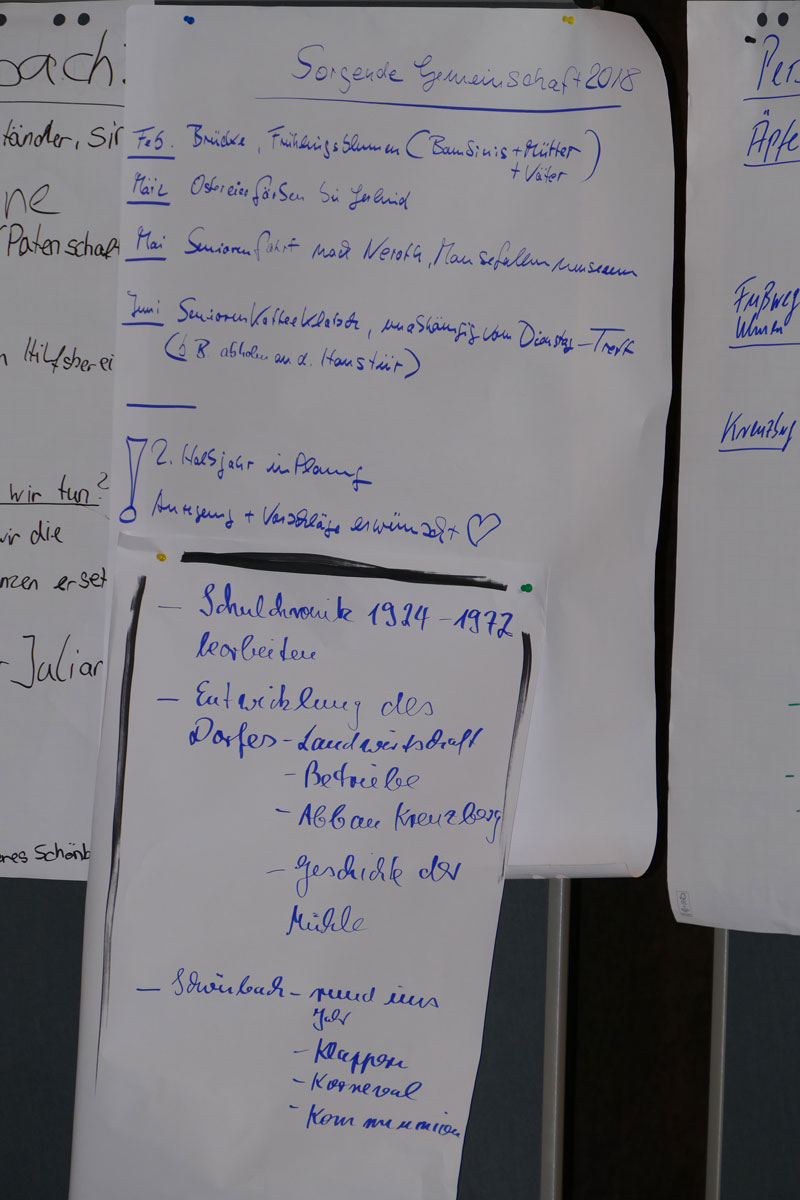 bach:
ständer, sin
ne
Patenschaft
n Hilfsberei
wir tun?
wir die
nzen erset
Juliar
eres Schönb
Sorgende Gemeinschaft 2018
Feb. Brücke, Frühlingsblumen (Bambinis + Mütter
+ Väter)
März Ostereier färben bei
Mai Seniorenfahrt nach Neroth, Mausefallenmuseum
Juni SeniorenKaffeeKlatsch, unabhängig vom Dienstag-Treff
(z B abholen an d. Haustür)
2. Halbjahr in Planung
Anregung + Vorschläge erwünscht ♡
– Schulchronik 1924 – 1972
bearbeiten
– Entwicklung des
Dorfes – Landwirtschaft
– Betriebe
– Abbau Kreuzberg
– Geschichte der
Mühle
– Schönbach – rund ums
Jahr
– Klappern
– Karneval
– Kommunion
Pers
Äpfe
Fußweg
Ulmen
Kreuzberg